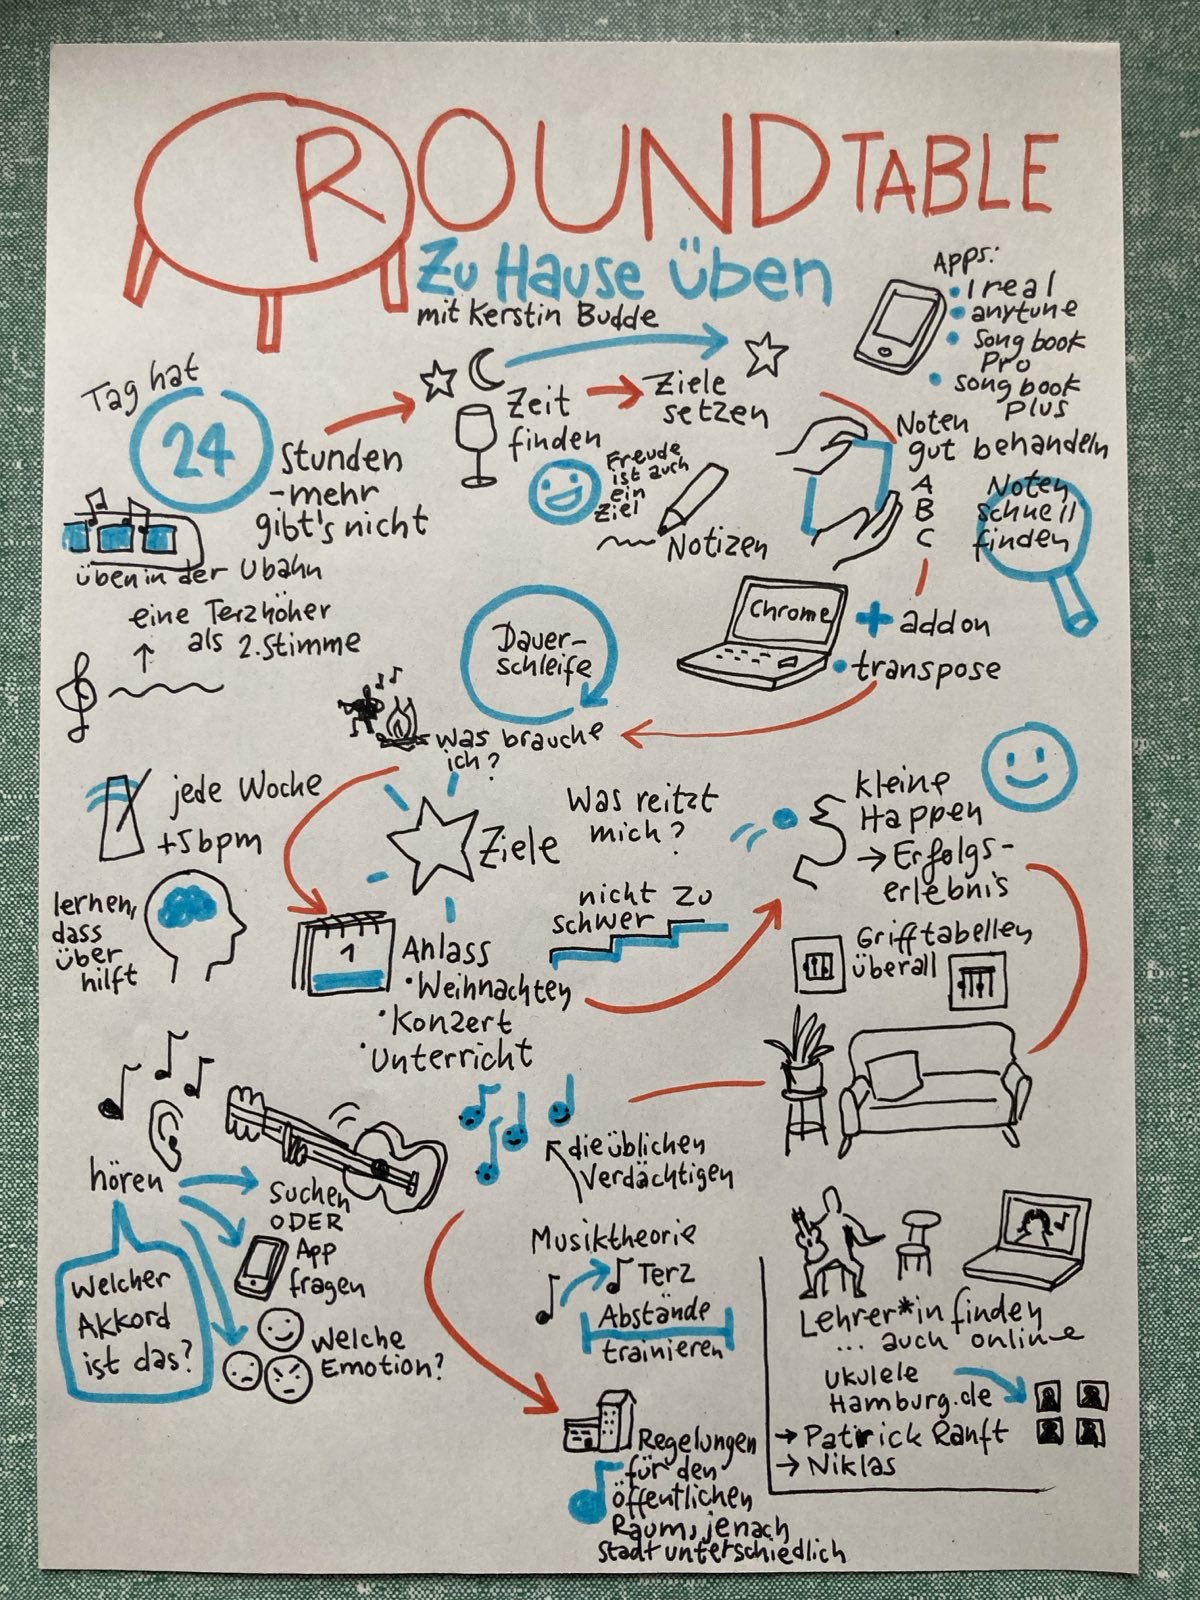 ROUND TABLE
Zu Hause üben
mit Kerstin Budde
Apps:
• ireal
• anytune
• Songbook
Pro
• songbook
plus
Tag hat
24
Stunden
-mehr
gibt's nicht
üben in der Ubahn
Zeit
finden
Freude
ist auch
ein
Ziel
Ziele
setzen
Notizen
Noten
gut behandeln
A
B
C
Noten
schnell
finden
Chrome
+ addon
• transpose
eine Terz höher
als 2. Stimme
Dauer-
schleife
was brauche
ich?
jede Woche
+5bpm
Ziele
Was reitzt
mich?
kleine
Happen
→ Erfolgs-
erlebnis
lernen,
dass
über
hilft
1
Anlass
• Weihnachten
• Konzert
• Unterricht
nicht zu
schwer
Grifftabellen
überall
hören
suchen
ODER
App
fragen
Welcher
Akkord
ist das?
Welche
Emotion?
die üblichen
Verdächtigen
Musiktheorie
Terz
Abstände
trainieren
Lehrer*in finden
... auch online
ukulele
Hamburg.de
→ Patrick Ranft
→ Niklas
Regelungen
für den
öffentlichen
Raum, jenach
stadt unterschiedlich